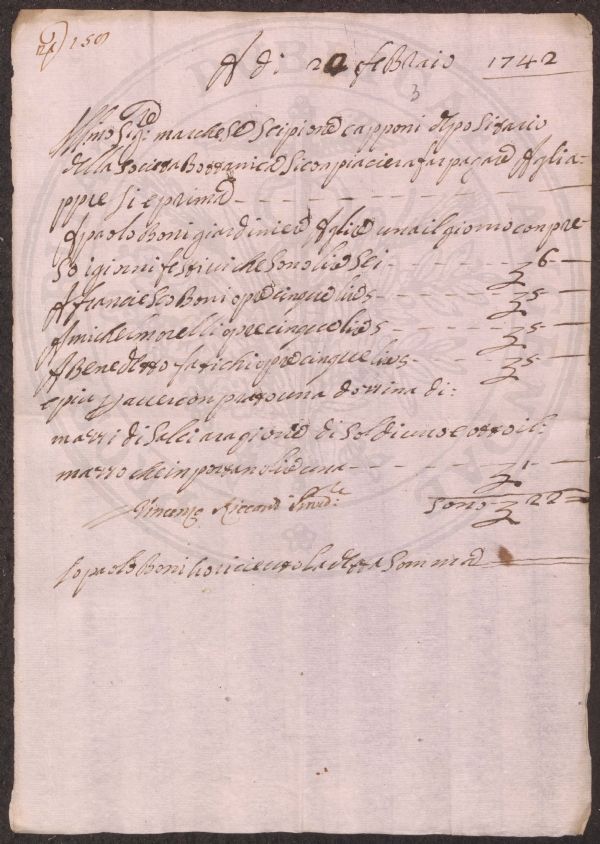 150
A di 22 febraio 1742
3
Ill.mo Sig.re marchese Scipione capponi depositario
della societa Bottanica si conpiacera far pagare Agli a-
ppre si e prima
A paolo Boni giardiniere A lire una il giorno conpre-
so i giorni festivi che sono lire sei 6
A francesco Boni opre cinque lire 5
A michel morelli opre cinque lire 5
A Benedetto fatichi opre cinque lire 5
e piu p aver conprato una dozzina di
mazzi di salci a ragione di soldi uno e otto il
mazzo che inportano lire una 1
Vincenzo Riccardi Provd.re sono 22
Io paolo Boni ho riceuto la detta somma